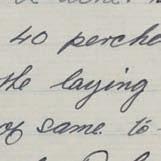 40 perche
the laying
of same to